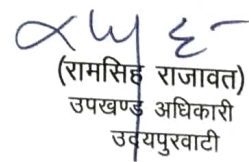 (रामसिह राजावत)
उपखण्ड अधिकारी
उदयपुरवाटी